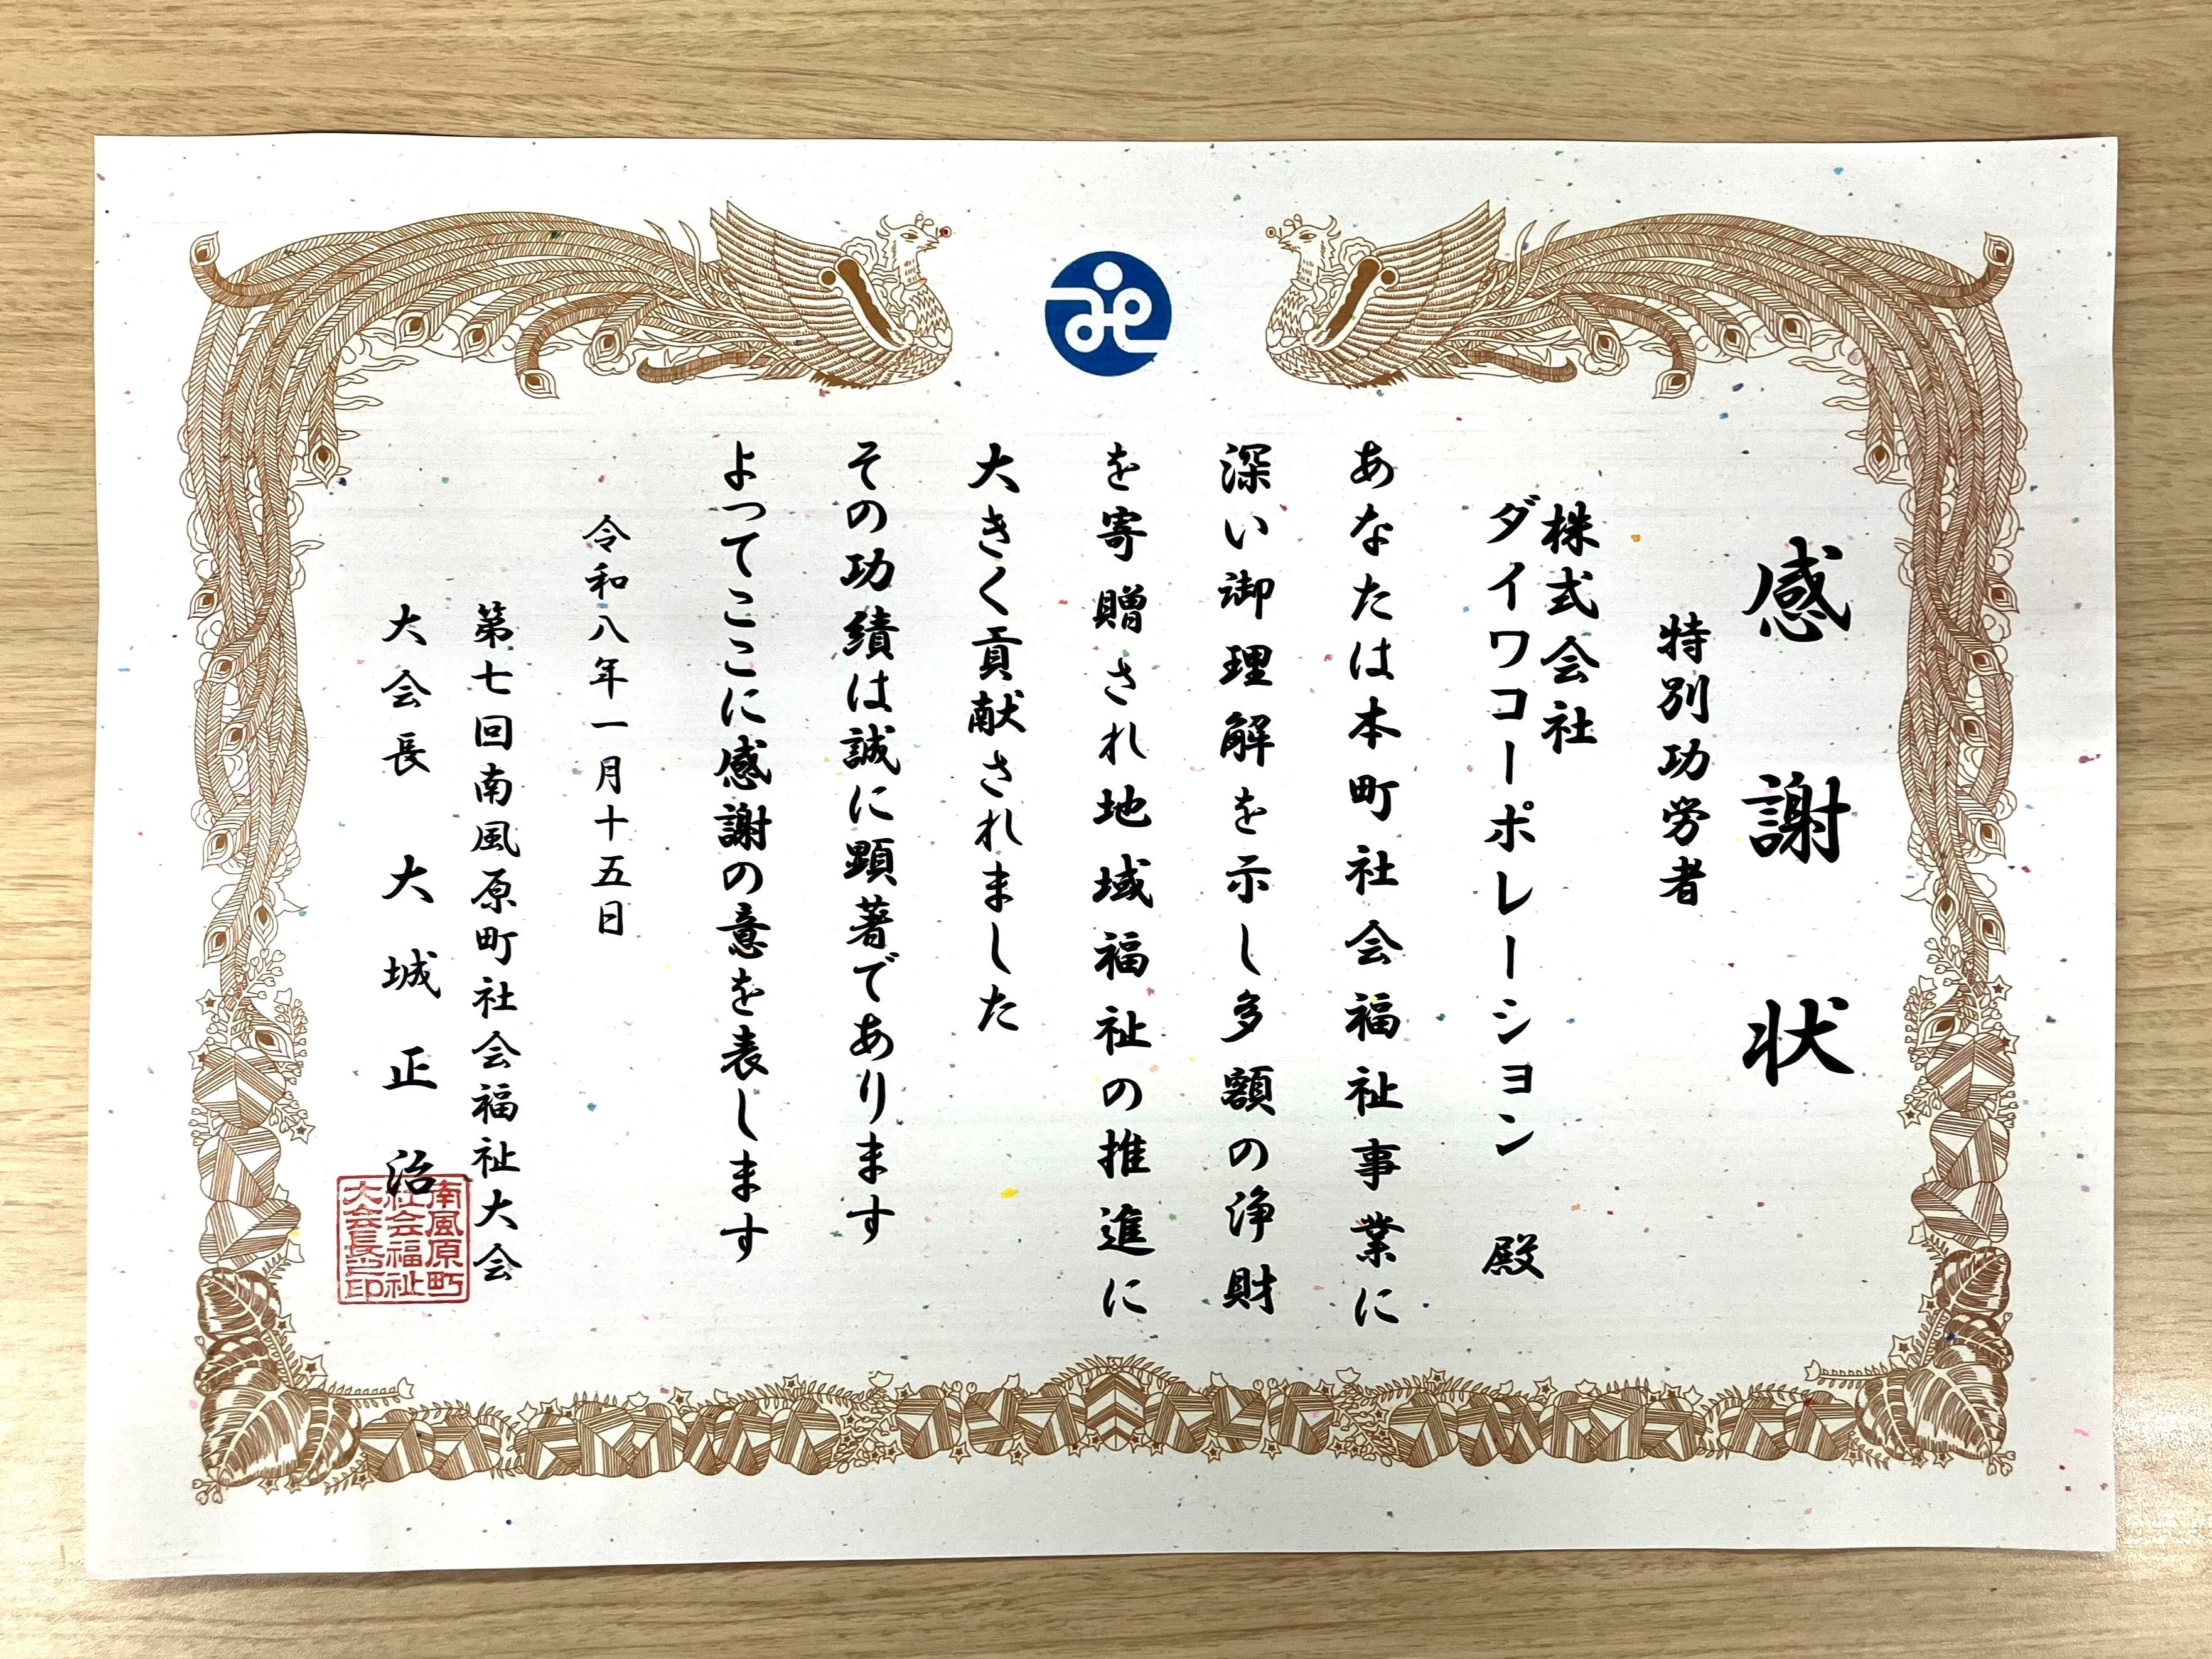 感謝状
特別功労者
株式会社
ダイワコーポレーション 殿
あなたは本町社会福祉事業に
深い御理解を示し多額の浄財
を寄贈され地域福祉の推進に
大きく貢献されました
その功績は誠に顕著であります
よってここに感謝の意を表します
令和八年一月十五日
第七回南風原町社会福祉大会
大会長 大城正治
南風原町
社会福祉
大会長之印